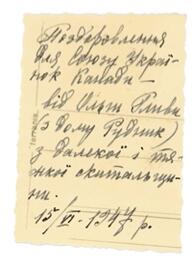 Поздоровлення
для Союзу Украї-
нок Канади!
від Ольги Пливи
(з дому Рудник)
з далекої і тя-
жкої скитальщи-
ни.
15/VI - 1947 р.